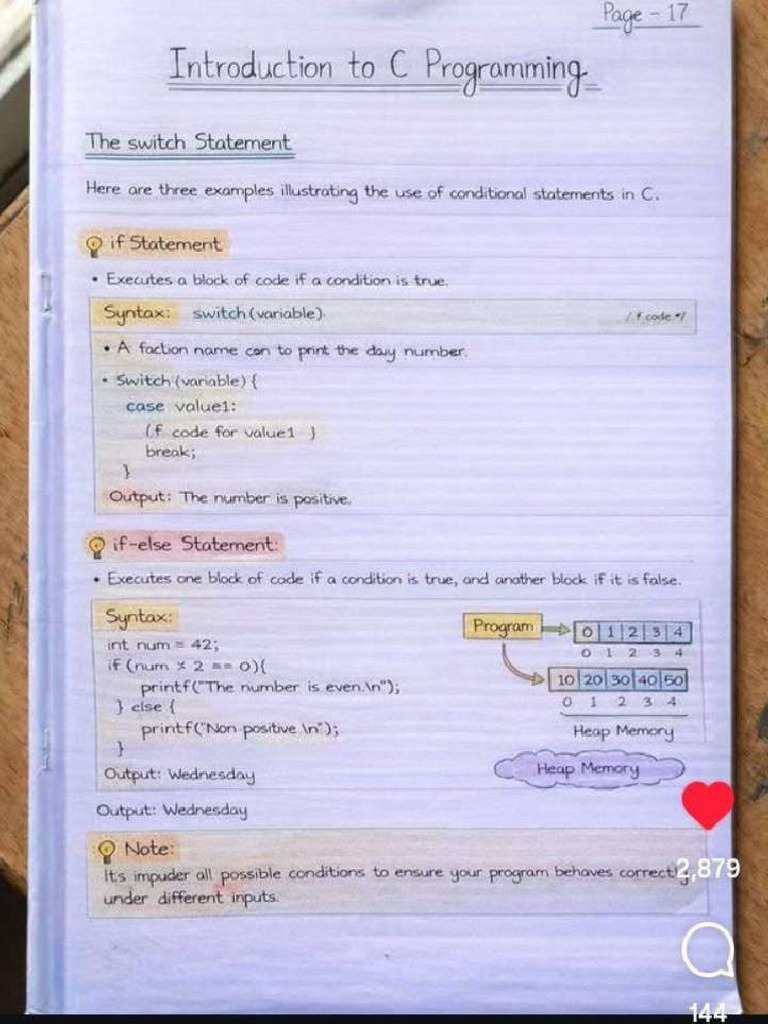 Page - 17
Introduction to C Programming
The switch Statement
Here are three examples illustrating the use of conditional statements in C.
if Statement
• Executes a block of code if a condition is true.
Syntax: switch (variable)
(f code */
• A faction name can to print the day number.
• Switch (variable) {
case value1:
(f code for value1 }
break;
}
Output: The number is positive.
if-else Statement:
• Executes one block of code if a condition is true, and another block if it is false.
Syntax:
int num = 42;
if (num % 2 == 0){
printf("The number is even.\n");
} else {
printf("Non positive \n");
}
Output: Wednesday
Program
0 1 2 3 4
0 1 2 3 4
10 20 30 40 50
0 1 2 3 4
Heap Memory
Heap Memory
Output: Wednesday
Note:
It's impuder all possible conditions to ensure your program behaves correctly
under different inputs.
2,879
144